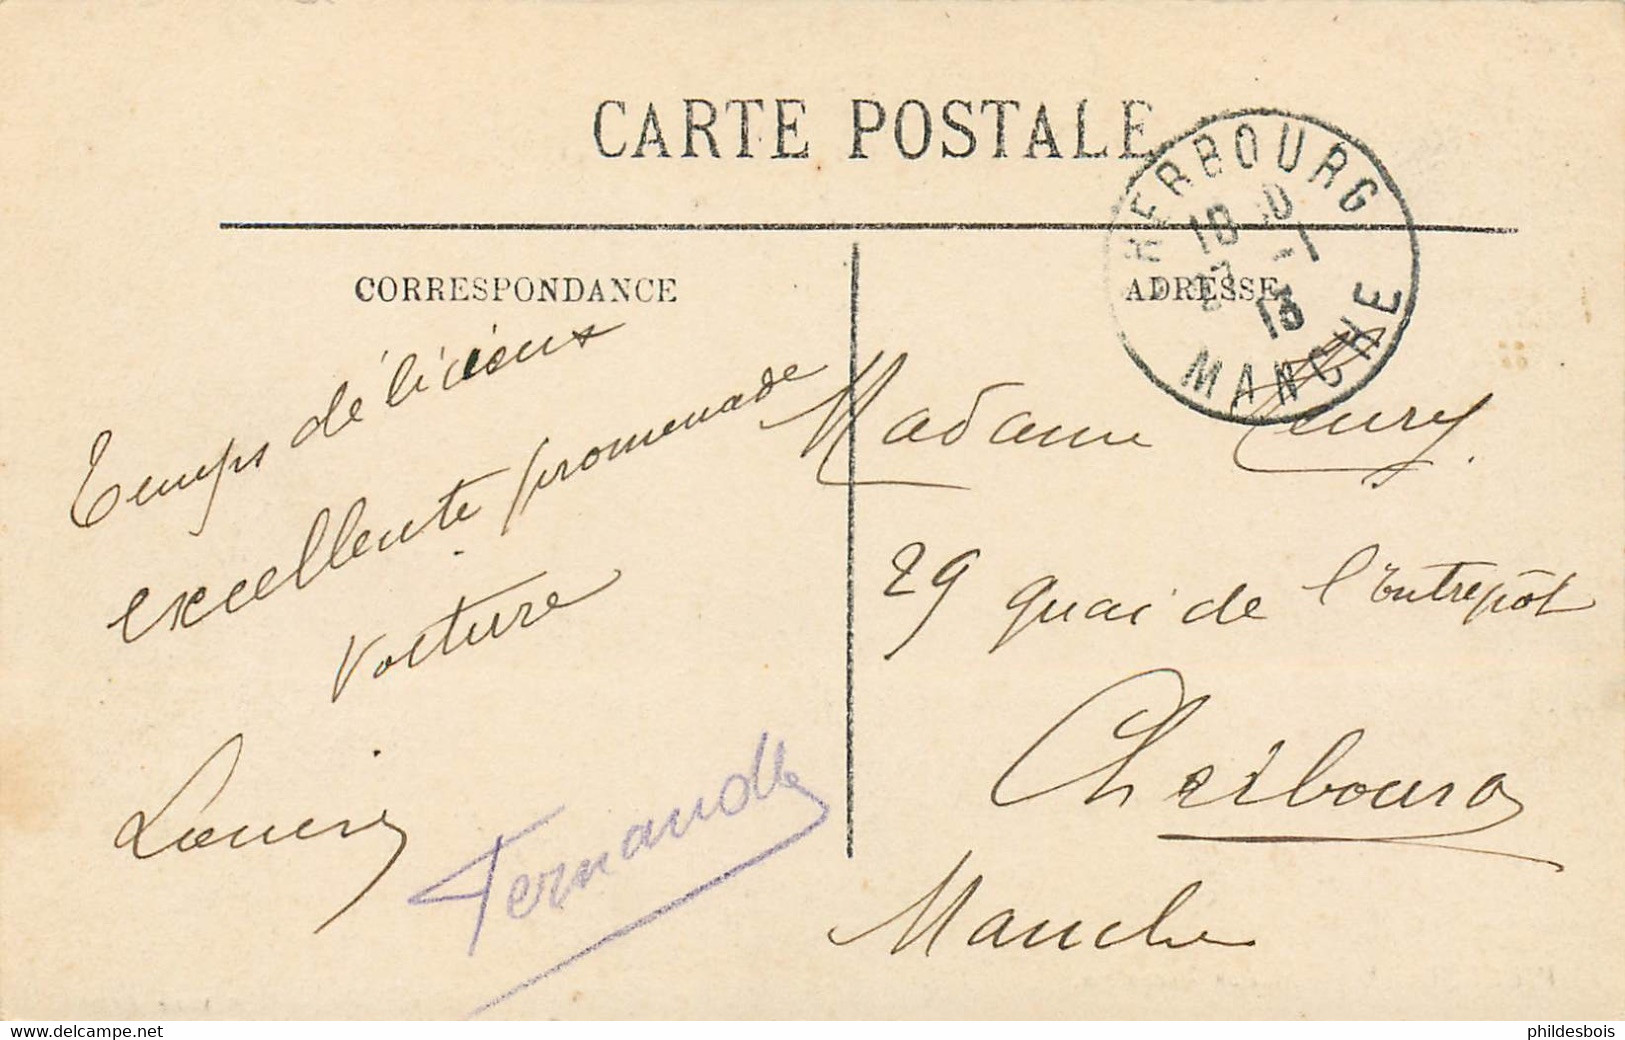 CARTE POSTALE
CHERBOURG
MANCHE
CORRESPONDANCE
ADRESSE
Temps délicieux
excellente promenade
voiture
Louis
Fernande
Madame
29 quai de l'Entrepôt
Cherbourg
Manche
www.delcampe.net
phildesbois